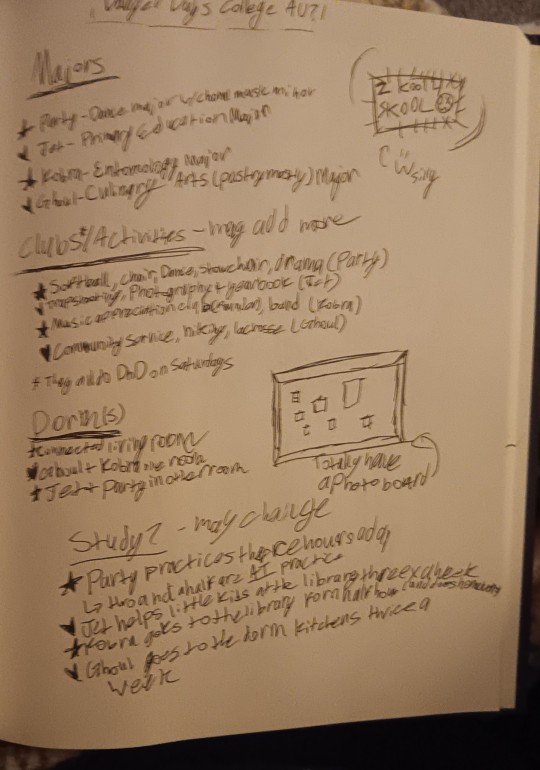 Danger Days College AU21
Majors
Party-Dance major w/choral music minor
Jet- Primary Education Major
Kobra-Entomology Major
Ghoul-Culinary Arts (pastry mostly) Major
2 KOOL 4
SKOOL
Clubs*/Activities - may add more
Softball, choir, Dance, showchoir, drama (Party)
Photography + yearbook (Jet)
Music appreciation club band (Kobra)
Community Service, hiking, lacrosse (Ghoul)
* They all do DnD on Saturdays
Dorm(s)
Connected living room
Ghoul + Kobra one room
Jet + Party in other room
Totally have
a Photo board
Study? - may change
Party practices three hours a day
two and a half are practice
Jet helps little kids at the library three x a week
Kobra goes to the library for half hour
Ghoul goes to the dorm kitchens twice a
week